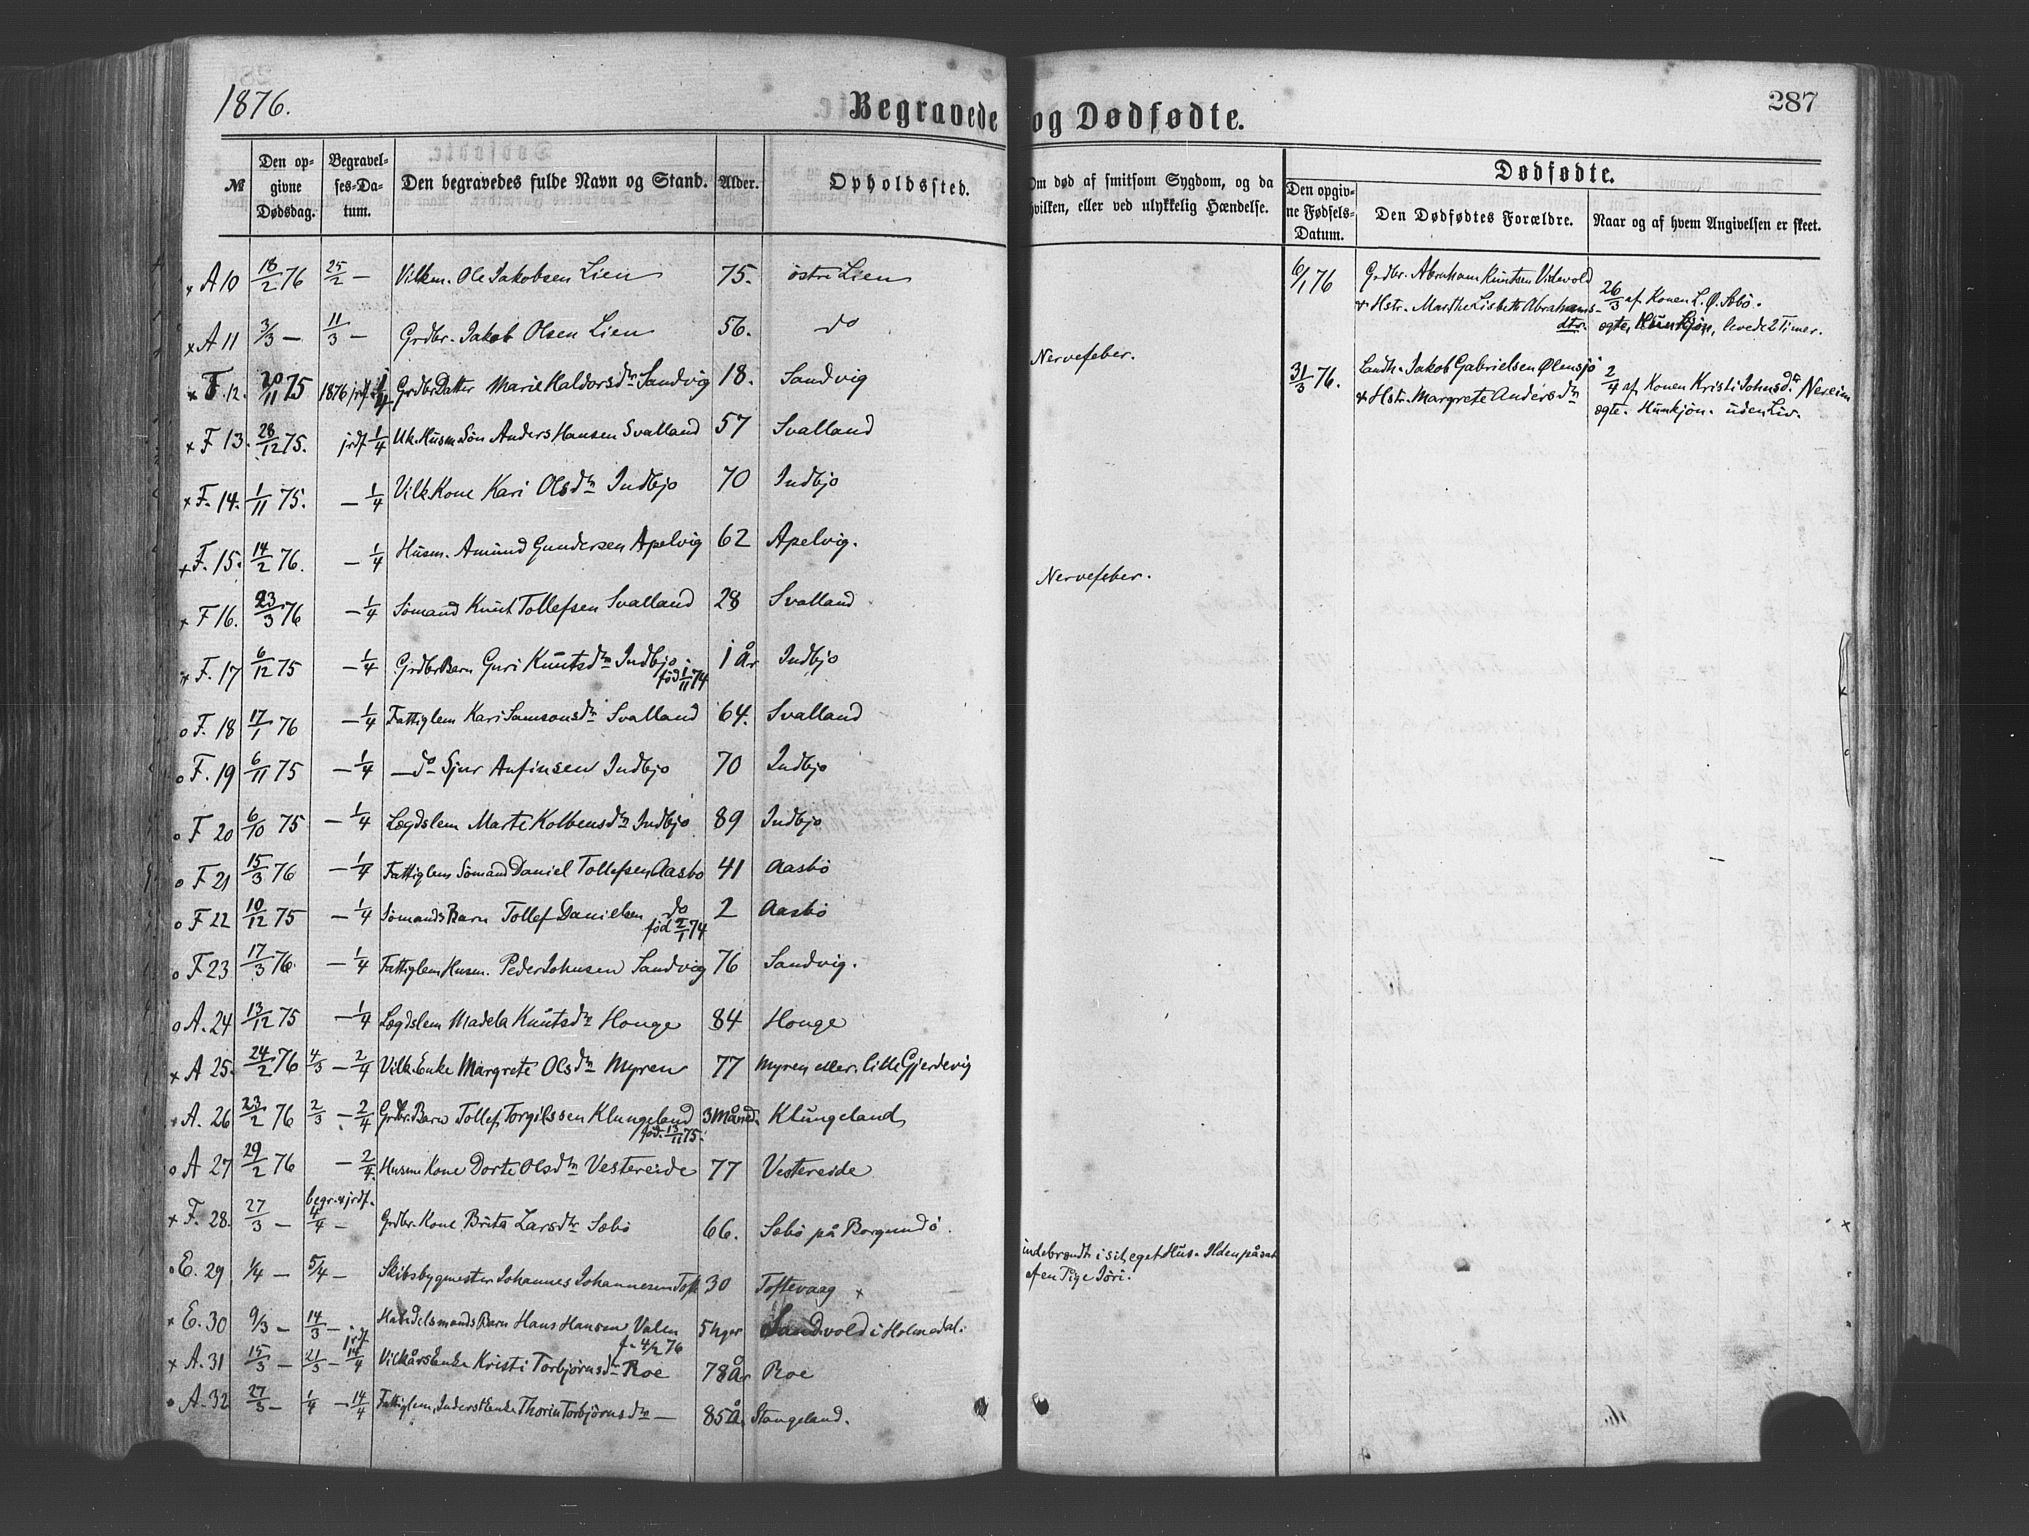 1876.
Begravede og Dødfødte.
287
№
Den opgivne Dødsdag.
Begravelses-Datum.
Den begravedes fulde Navn og Stand.
Alder.
Opholdssted.
Om død af smitsom Sygdom, og da hvilken, eller ved ulykkelig Hændelse.
Dødfødte.
Den opgivne Fødsels-Datum.
Den Dødfødtes Forældre.
Naar og af hvem Angivelsen er skeet.
x A 10 18/2 76 25/2 — Vilkm. Ole Jakobsen Lien 75. östre Lien
6/1 76 Grdbr. Abraham Knutsen Videvold 26/3 af Konen L. Ø. Sebö.
& Hstr. Marthe Lisbeth Abrahamsdtr. ægte, Hunkjön, levede 2 Timer.
x A 11 3/3 — 11/3 — Grdbr. Jakob Olsen Lien 56. do Nervefeber.
31/3 76. Landh. Jakob Gabrielsen Ølensjö 2/4 af Konen Kristi Johnsdr Nereim
& Hstr. Margrete Andersdtr ægte. Hunkjön. uden Liv.
x F. 12. 20/11 75 1876 jrdf. 1/4 Grdbr Datter Marie Haldorsdtr Sandvig 18. Sandvig
x F 13. 28/12 75. jrdf 1/4 Uk. Husm Sön Anders Hansen Svalland 57 Svalland
x F. 14. 1/11 75. — 1/4 Vilk. Kone Kari Olsdtr Indbjo 70 Indbjo
x F. 15. 14/2 76. — 1/4 Husm. Amund Gundersen Apelvig 62 Apelvig. Nervefeber.
x F 16. 23/3 76 — 1/4 Sömand Knut Tollefsen Svalland 28 Svalland
x F. 17 6/12 75 — 1/4 Grdbr Barn Guri Knutsdtr Indbjo. 1 År Indbjo
född 1/11 74
o F. 18 17/1 76 — 1/4 Fattiglem Kari Samsonsdtr Svalland 64. Svalland
o F. 19 6/11 75 — 1/4 — do Sjur Anfinsen Indbjo 70 Indbjo
o F 20 6/10 75 — 1/4 Lægdslem Marte Kolbensdtr Indbjo 89 Indbjo
o F 21 15/3 76 — 1/4 Fattiglem Sömand Daniel Tollefsen Aasbö 41 Aasbö
o F 22 10/12 75 — 1/4 Sömands Barn Tollef Danielsen do 2 Aasbö
född 2/1 74
o F 23 17/3 76 — 1/4 Fattiglem Husm. Peder Johnsen Sandvig 76 Sandvig.
o A. 24 13/12 75 — 1/4 Lægdslem Madela Knutsdtr Houge 84 Houge
x A 25. 24/2 76 4/3 — 2/4 Vilk. Enke Margrete Olsdtr Myren 77 Myren eller lille Gjerdevig
x A. 26 23/2 76 2/3 — 2/4 Grdbr. Barn Tollef Torgilssen Klungeland 3 Måned. Klungeland
föd. 13/11 75.
o A 27 29/2 76 — 2/4. Husm Kone Dorte Olsdtr Vestereide 77 Vestereide
begr. & jrdf.
x F. 28. 27/3 — 4/4 — Grdbr. Kone Brita Larsdtr Sæbö 66. Sæbö på Borgundö.
E. 29 1/4 — 5/4 — Skibsbygmester Johannes Johannesen Toft 30 Toftevaag x
indebrændt i sit eget Hus. Ilden påsat
af en Pige Jöri.
x E. 30 9/3 — 14/3 — Handelsmands Barn Hans Hansen Valen 5 Uger Sandvold i Holmedal.
jrdf f. 4/2 76
x A. 31 15/3 — 21/3 — 14/4 Vilkårs Enke Kristi Torbjörnsdtr Roe 78 År Roe
A. 32 27/3 — 1/4 — 14/4 Fattiglem, Inderst Enke Thorin Torbjörnsdtr — 85 År Stangeland.